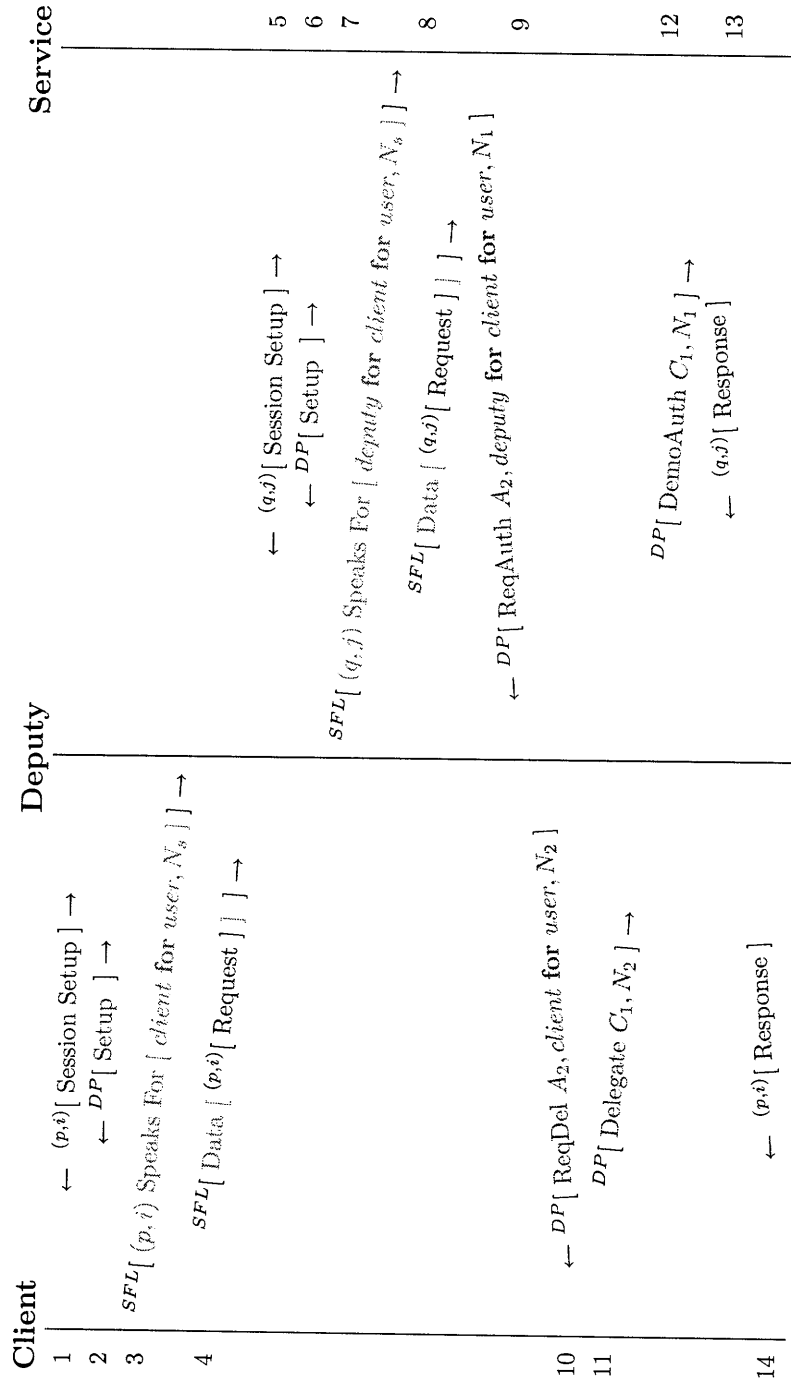 Client Deputy Service
1 ← (p,i)[ Session Setup ] →
2 ← DP[ Setup ] →
3 SFL[ (p, i) Speaks For [ client for user, Nₛ ] ] →
4 SFL[ Data [ (p,i)[ Request ] ] ] →
← (q,j)[ Session Setup ] → 5
← DP[ Setup ] → 6
SFL[ (q, j) Speaks For [ deputy for client for user, Nₛ ] ] → 7
SFL[ Data [ (q,j)[ Request ] ] ] → 8
← DP[ ReqAuth A₂, deputy for client for user, N₁ ] 9
10 ← DP[ ReqDel A₂, client for user, N₂ ]
11 DP[ Delegate C₁, N₂ ] →
DP[ DemoAuth C₁, N₁ ] → 12
← (q,j)[ Response ] 13
14 ← (p,i)[ Response ]